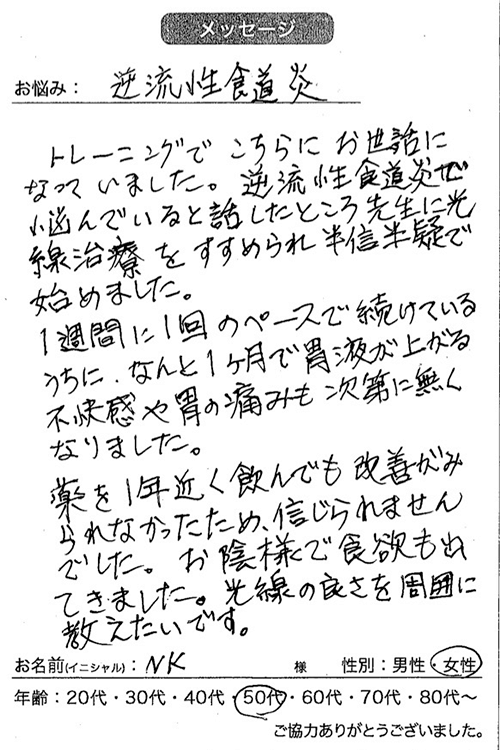 メッセージ
お悩み： 逆流性食道炎
トレーニングで こちらに お世話に
なって いました。 逆流性食道炎で
悩んでいると話したところ先生に光
線治療 を すすめられ 半信半疑で
始めました。
1週間に1回 のペースで続けている
うちに、なんと1ヶ月で胃液が上がる
不快感や胃の痛みも次第に無く
なりました。
薬を1年近く飲んでも改善がみ
られなかったため、信じられません
でした。 お陰様で食欲も出
てきました。光線の良さを周囲に
教えたいです。
お名前(イニシャル)： NK 様 性別：男性・女性
年齢：20代・30代・40代・50代・60代・70代・80代～
ご協力ありがとうございました。